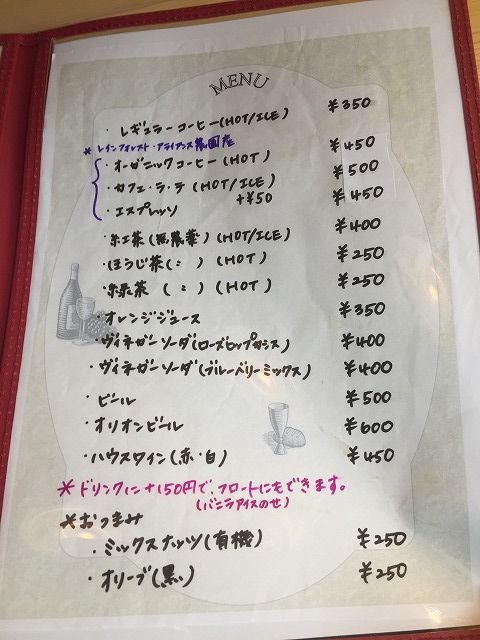 MENU
・レギュラーコーヒー(HOT/ICE) ¥350
*レインフォレスト・アライアンス農園産
・オーガニックコーヒー(HOT) ¥450
・カフェ・ラ・テ (HOT/ICE) ¥500
+¥50
・エスプレッソ ¥450
・紅茶(無農薬)(HOT/ICE) ¥400
・ほうじ茶(〃)(HOT) ¥250
・緑茶 (〃)(HOT) ¥250
・オレンジジュース ¥350
・ヴィネガーソーダ(ローズヒップカシス) ¥400
・ヴィネガーソーダ(ブルーベリーミックス) ¥400
・ビール ¥500
・オリオンビール ¥600
・ハウスワイン(赤・白) ¥450
*ドリンクに+150円で、フロートにもできます。
(バニラアイスのせ)
*おつまみ
・ミックスナッツ(有機) ¥250
・オリーブ(黒) ¥250